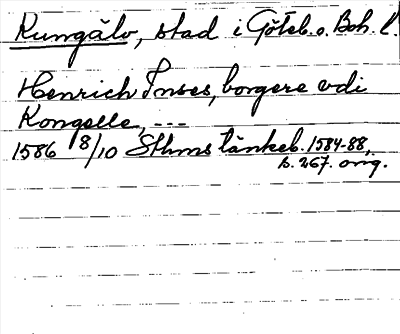 Kungälv, stad i Göteb. o. Boh. l.
Henrich Inses, borgere vdi
Kongelle, ---
1586 8/10 Sthms tänkeb. 1584-88,
s. 267. orig.